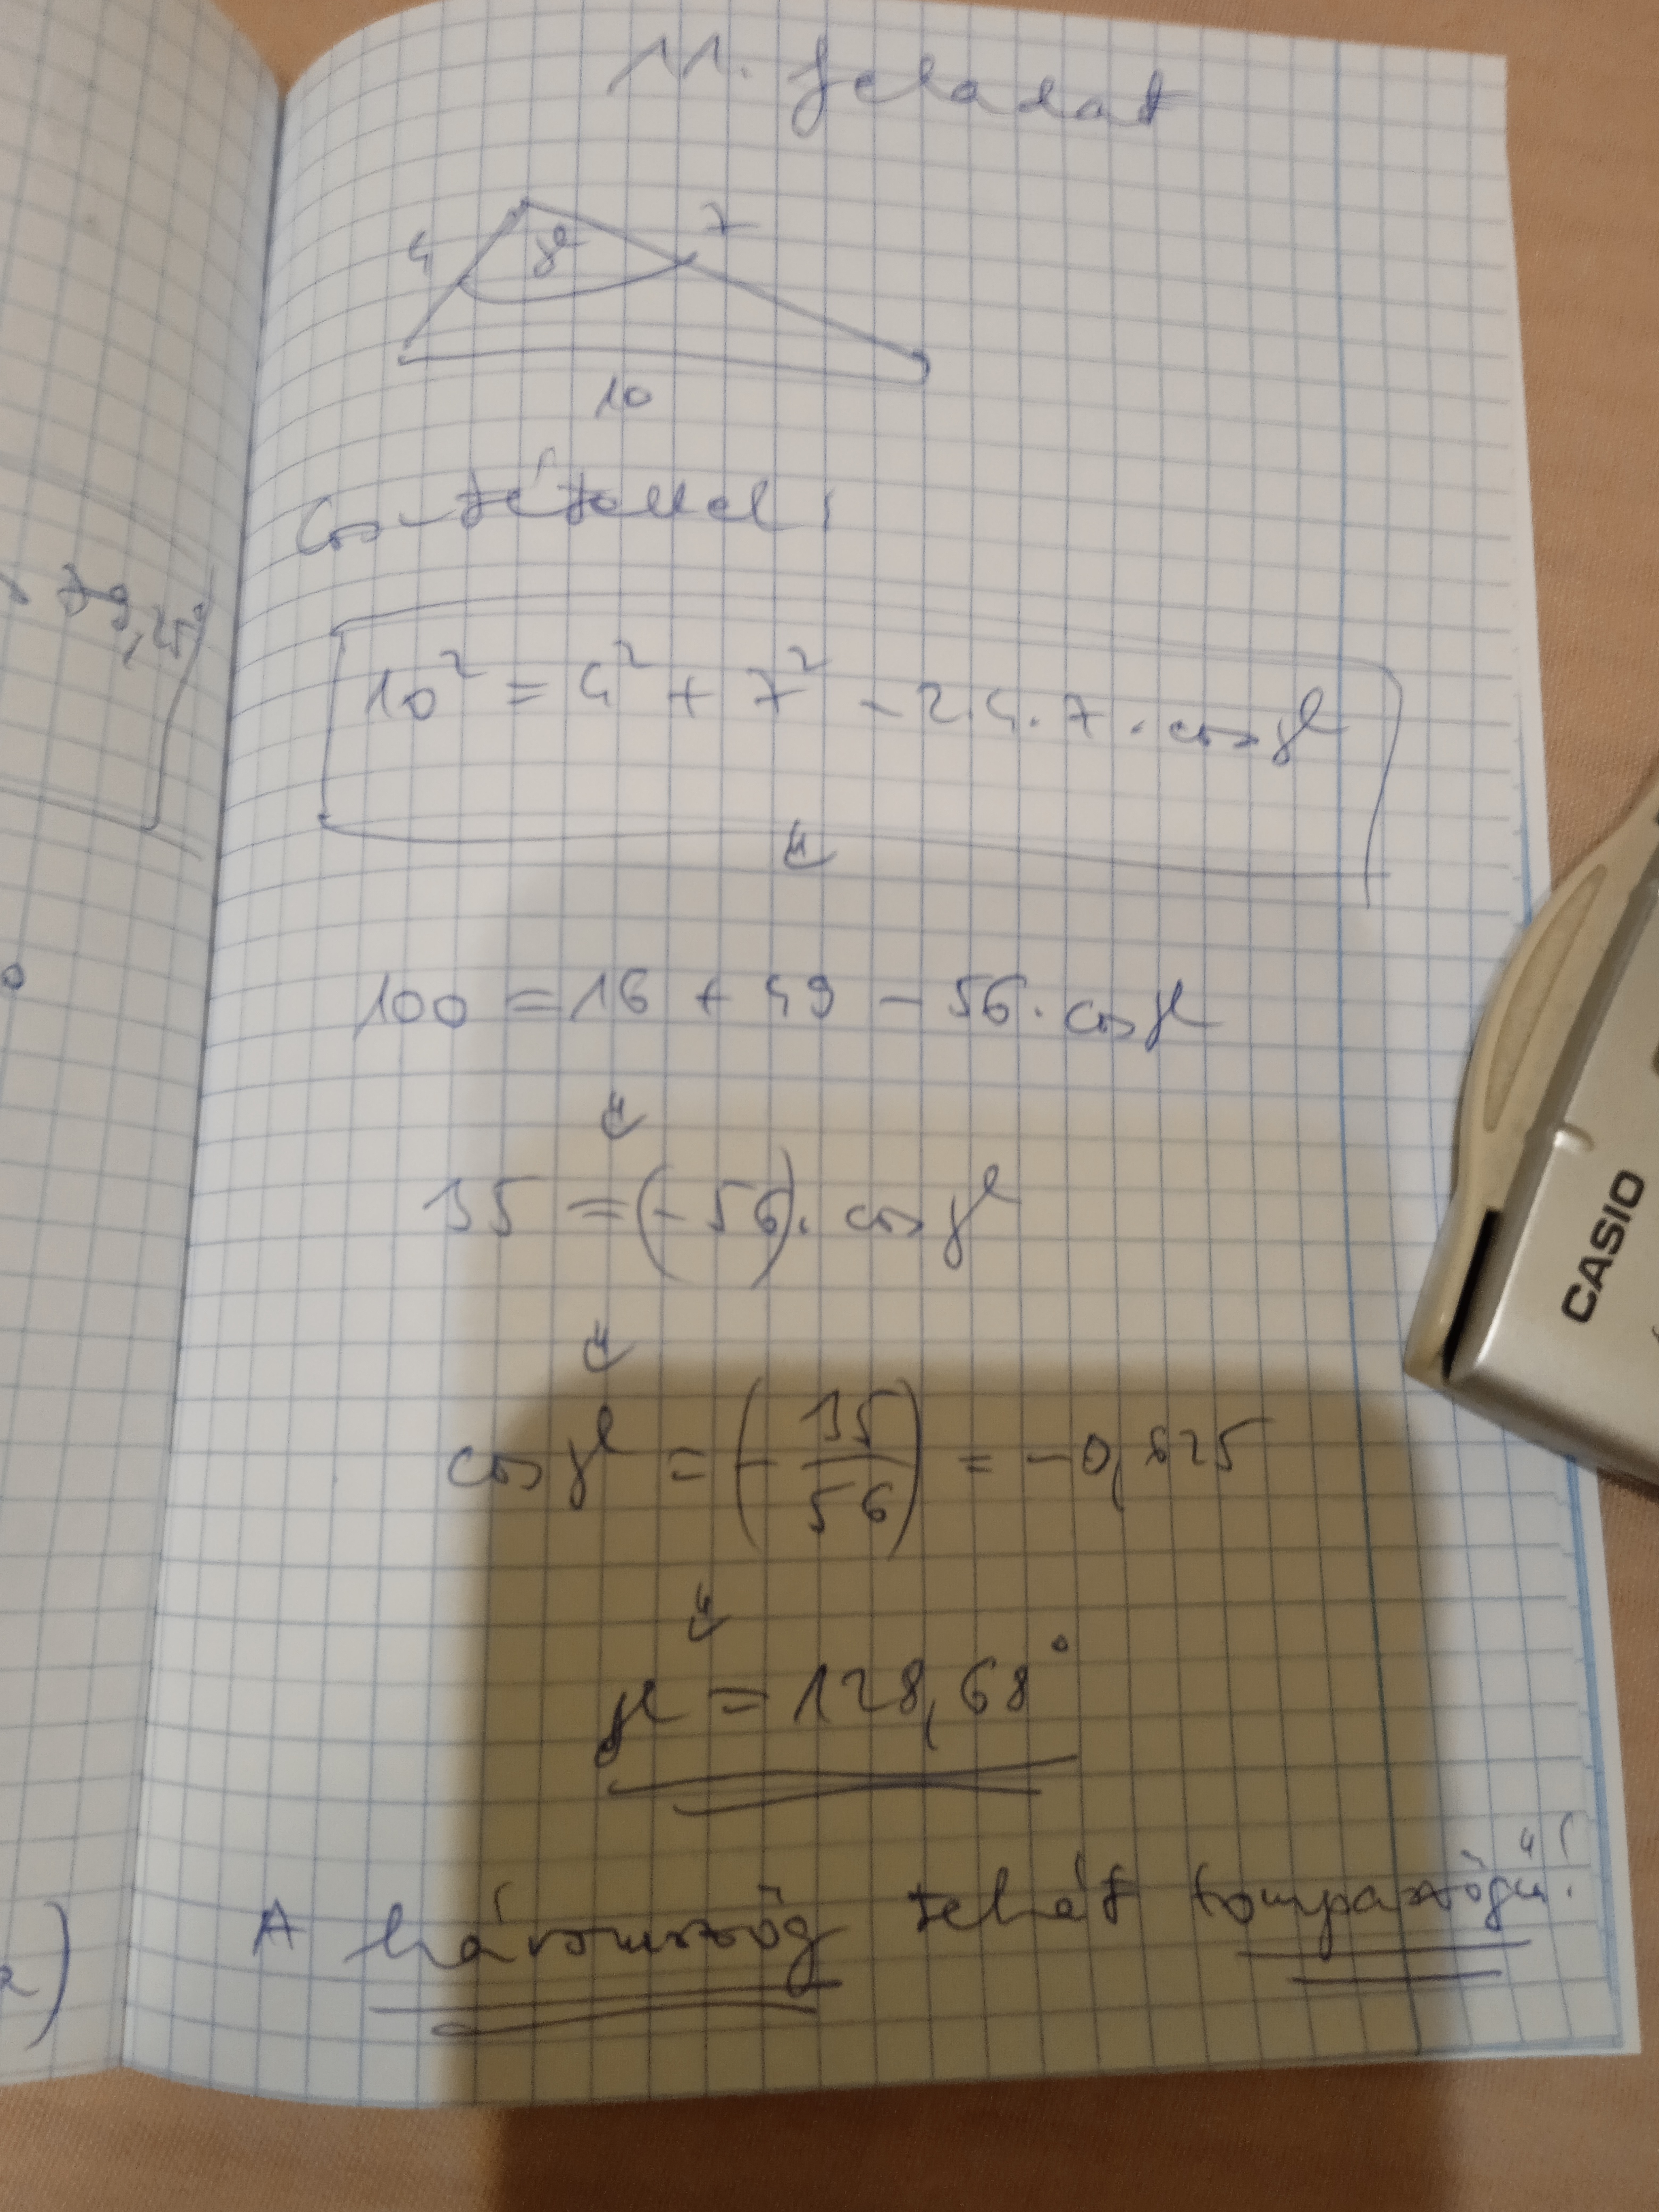 11. feladat
4
γ
7
10
Cos-tétellel:
79,25°
10² = 4² + 7² - 2·4·7·cosγ
100 = 16 + 49 - 56·cosγ
35 = (-56)·cosγ
cosγ = (-35/56) = -0,625
γ = 128,68°
A háromszög tehát tompaszögű!
CASIO